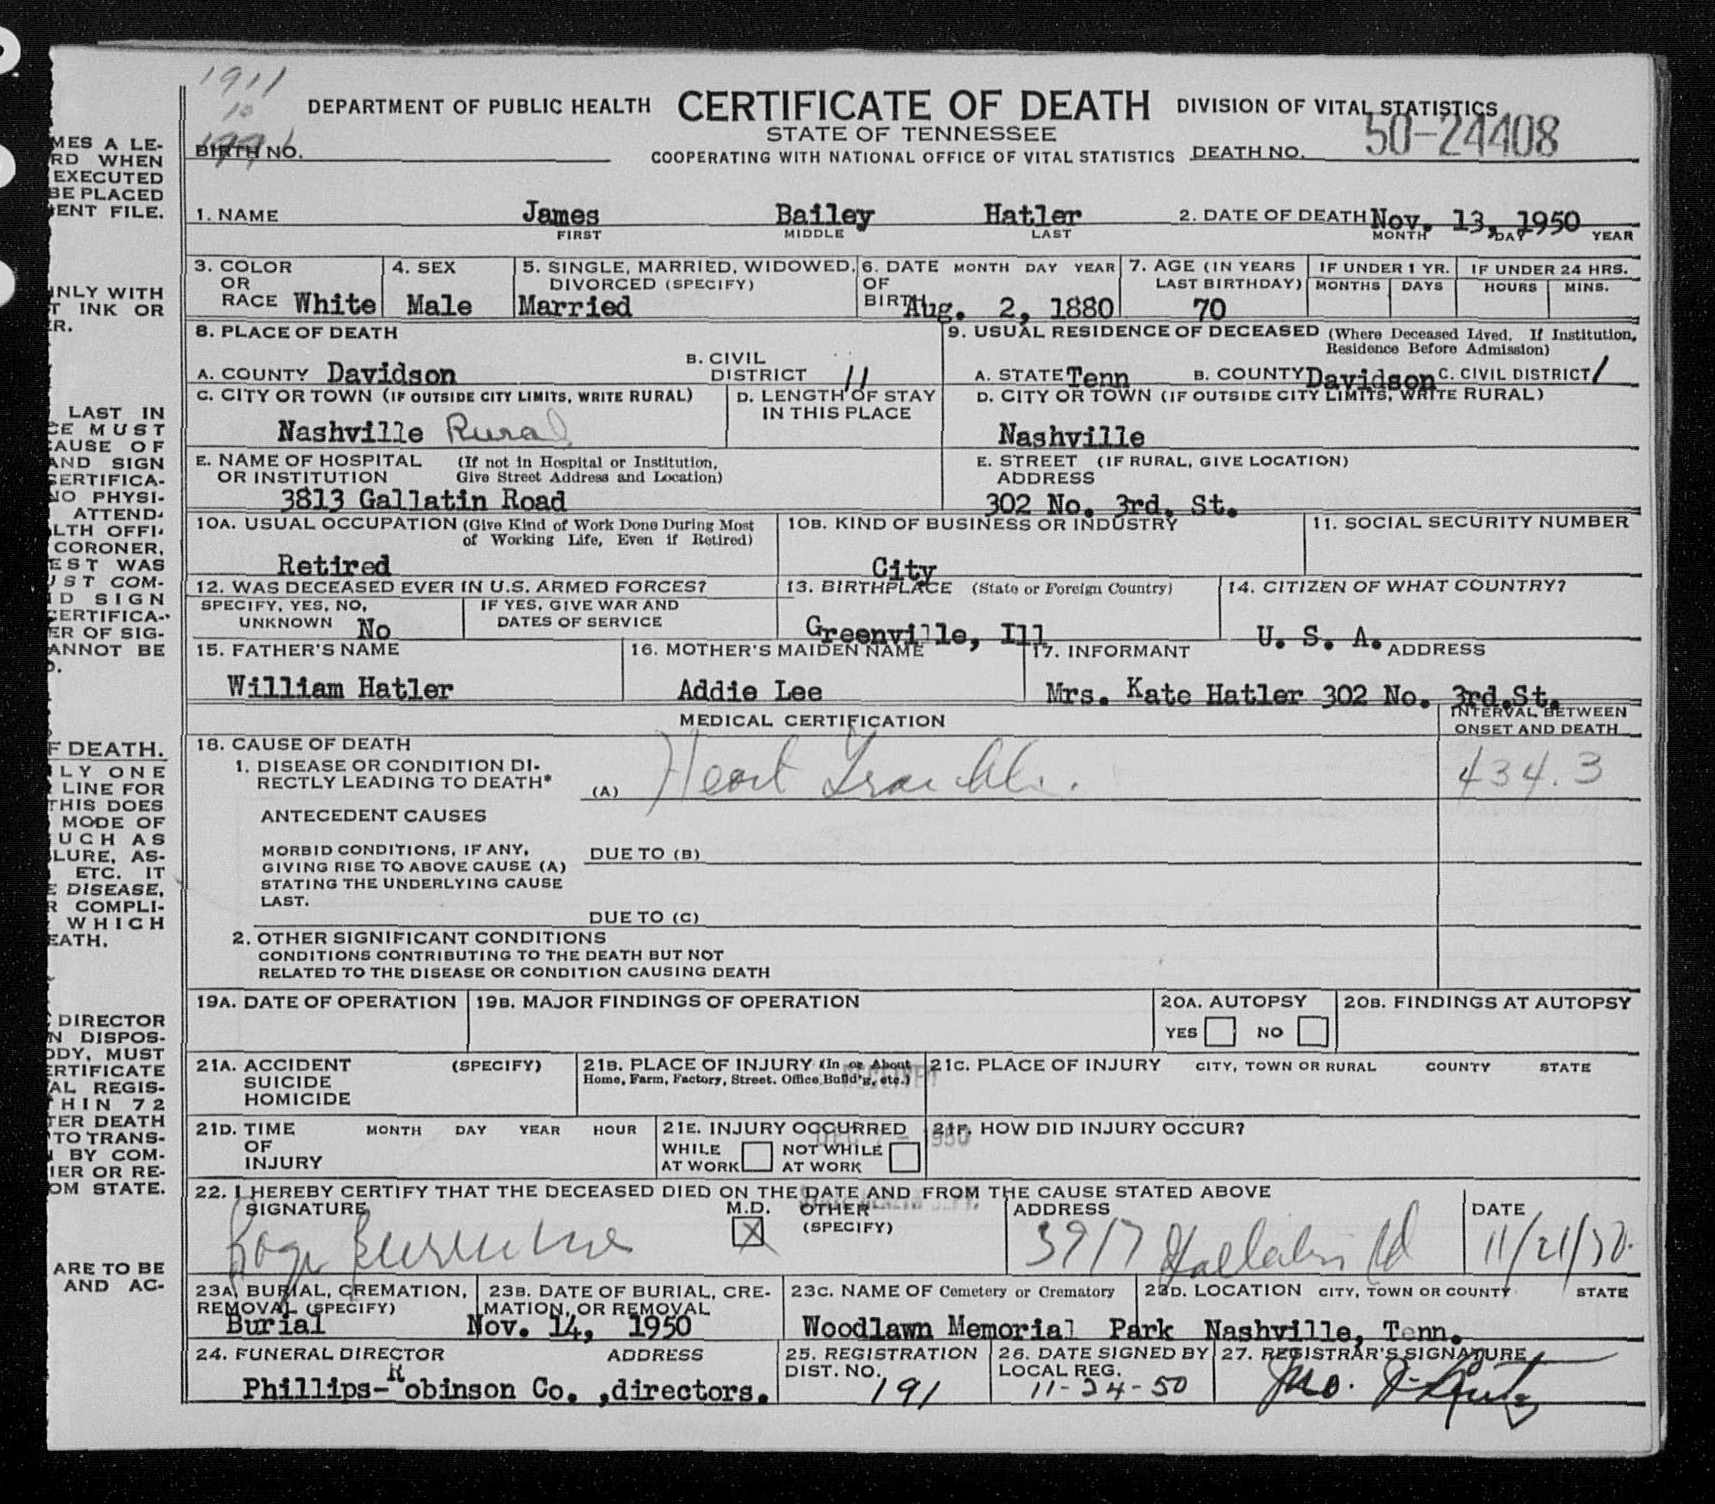 1911
10
DEPARTMENT OF PUBLIC HEALTH CERTIFICATE OF DEATH DIVISION OF VITAL STATISTICS
STATE OF TENNESSEE 50-24408
BIRTH NO. COOPERATING WITH NATIONAL OFFICE OF VITAL STATISTICS DEATH NO.
1. NAME James Bailey Hatler 2. DATE OF DEATH Nov. 13, 1950
FIRST MIDDLE LAST MONTH DAY YEAR
3. COLOR OR RACE White 4. SEX Male 5. SINGLE, MARRIED, WIDOWED, DIVORCED (SPECIFY) Married 6. DATE OF BIRTH MONTH DAY YEAR Aug. 2, 1880 7. AGE (IN YEARS LAST BIRTHDAY) 70 IF UNDER 1 YR. MONTHS DAYS IF UNDER 24 HRS. HOURS MINS.
8. PLACE OF DEATH 9. USUAL RESIDENCE OF DECEASED (Where Deceased Lived. If Institution, Residence Before Admission)
A. COUNTY Davidson B. CIVIL DISTRICT 11 A. STATE Tenn B. COUNTY Davidson C. CIVIL DISTRICT 1
C. CITY OR TOWN (IF OUTSIDE CITY LIMITS, WRITE RURAL) D. LENGTH OF STAY IN THIS PLACE D. CITY OR TOWN (IF OUTSIDE CITY LIMITS, WRITE RURAL)
Nashville Rural Nashville
E. NAME OF HOSPITAL OR INSTITUTION (If not in Hospital or Institution, Give Street Address and Location) E. STREET ADDRESS (IF RURAL, GIVE LOCATION)
3813 Gallatin Road 302 No. 3rd. St.
10A. USUAL OCCUPATION (Give Kind of Work Done During Most of Working Life, Even if Retired) 10B. KIND OF BUSINESS OR INDUSTRY 11. SOCIAL SECURITY NUMBER
Retired City
12. WAS DECEASED EVER IN U.S. ARMED FORCES? 13. BIRTHPLACE (State or Foreign Country) 14. CITIZEN OF WHAT COUNTRY?
SPECIFY, YES, NO, UNKNOWN No IF YES, GIVE WAR AND DATES OF SERVICE Greenville, Ill U. S. A.
15. FATHER'S NAME 16. MOTHER'S MAIDEN NAME 17. INFORMANT ADDRESS
William Hatler Addie Lee Mrs. Kate Hatler 302 No. 3rd.St.
MEDICAL CERTIFICATION INTERVAL BETWEEN ONSET AND DEATH
18. CAUSE OF DEATH
1. DISEASE OR CONDITION DIRECTLY LEADING TO DEATH* (A) Heart Trouble. 434.3
ANTECEDENT CAUSES
MORBID CONDITIONS, IF ANY, GIVING RISE TO ABOVE CAUSE (A) STATING THE UNDERLYING CAUSE LAST. DUE TO (B)
DUE TO (C)
2. OTHER SIGNIFICANT CONDITIONS
CONDITIONS CONTRIBUTING TO THE DEATH BUT NOT
RELATED TO THE DISEASE OR CONDITION CAUSING DEATH
19A. DATE OF OPERATION 19B. MAJOR FINDINGS OF OPERATION 20A. AUTOPSY 20B. FINDINGS AT AUTOPSY
YES NO
21A. ACCIDENT SUICIDE HOMICIDE (SPECIFY) 21B. PLACE OF INJURY (In or About Home, Farm, Factory, Street. Office Build'g, etc.) 21C. PLACE OF INJURY CITY, TOWN OR RURAL COUNTY STATE
21D. TIME OF INJURY MONTH DAY YEAR HOUR 21E. INJURY OCCURRED 21F. HOW DID INJURY OCCUR?
WHILE AT WORK NOT WHILE AT WORK
22. I HEREBY CERTIFY THAT THE DECEASED DIED ON THE DATE AND FROM THE CAUSE STATED ABOVE
SIGNATURE M.D. X OTHER (SPECIFY) ADDRESS DATE
3917 Gallatin Rd 11/21/50.
23A. BURIAL, CREMATION, REMOVAL (SPECIFY) 23B. DATE OF BURIAL, CREMATION, OR REMOVAL 23C. NAME OF Cemetery or Crematory 23D. LOCATION CITY, TOWN OR COUNTY STATE
Burial Nov. 14, 1950 Woodlawn Memorial Park Nashville, Tenn.
24. FUNERAL DIRECTOR ADDRESS 25. REGISTRATION DIST. NO. 26. DATE SIGNED BY LOCAL REG. 27. REGISTRAR'S SIGNATURE
Phillips-Robinson Co. ,directors. 191 11-24-50
MES A LE-
RD WHEN
EXECUTED
BE PLACED
ENT FILE.
NLY WITH
T INK OR
ER.
LAST IN
CE MUST
CAUSE OF
AND SIGN
CERTIFICA-
NO PHYSI-
ATTEND-
LTH OFFI-
CORONER,
EST WAS
UST COM-
ND SIGN
CERTIFICA-
ER OF SIG-
ANNOT BE
D.
F DEATH.
LY ONE
LINE FOR
THIS DOES
MODE OF
UCH AS
LURE, AS-
ETC. IT
E DISEASE,
R COMPLI-
WHICH
EATH.
DIRECTOR
N DISPOS-
ODY, MUST
ERTIFICATE
AL REGIS-
THIN 72
TER DEATH
TO TRANS-
BY COM-
IER OR RE-
OM STATE.
ARE TO BE
AND AC-